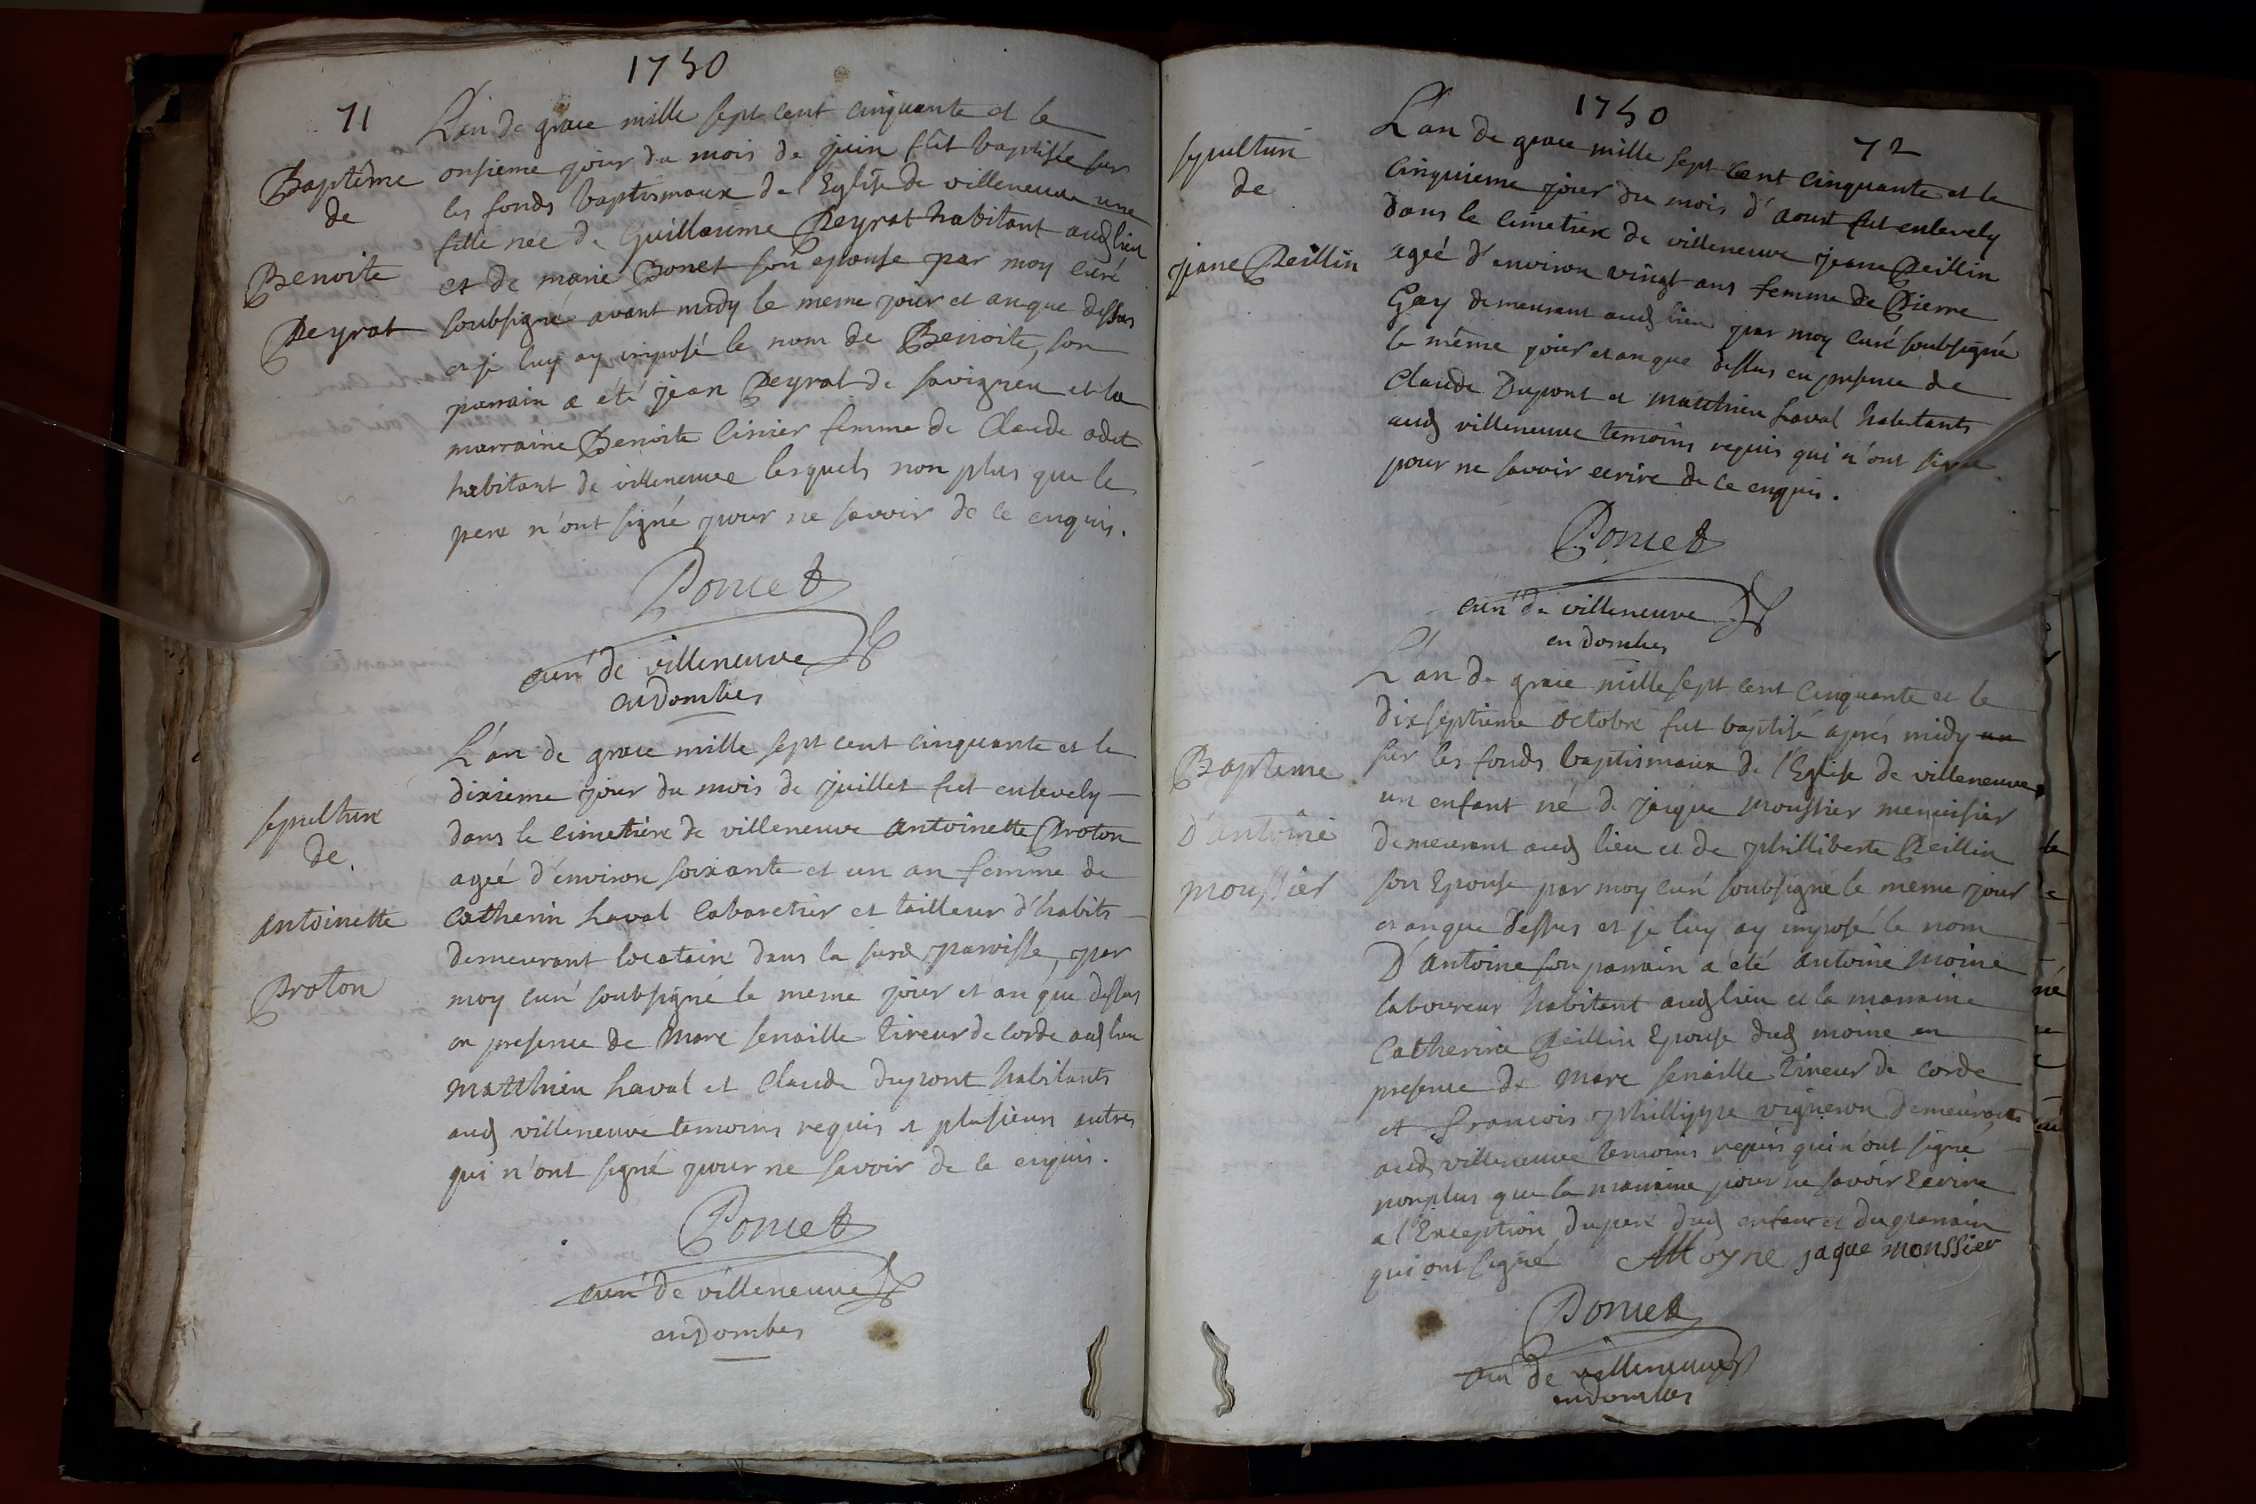 1750
71
L'an de grace mille sept cent cinquante et le
onsieme jour du mois de juin fût baptisée sur
les fonds baptismaux de l'Eglise de villeneuve une
fille née de Guillaume Peyrat habitant aud lieu
et de marie Bonet son epouse par moy curé
soubsigné avant midy le meme jour et an que dessus
et je luy ay imposé le nom de Benoite, son
parrain a eté jean Peyrat de savigneu et la
marraine Benoite Cinier femme de Claude odet
habitant de villeneuve lesquels non plus que le
pere n'ont signé pour ne savoir de ce enquis.
Baptême
de
Benoite
Peyrat
Poncet
curé de villeneuve
en Dombes
L'an de grace mille sept cent cinquante et le
dixieme jour du mois de juillet fut enlevely
dans le cimetiere de villeneuve Antoinette Proton
ageé d'environ soixante et un an femme de
Catherin Laval Cabaretier et tailleur d'habits
demeurant locataire dans la susd parroisse, par
moy curé soubsigné le meme jour et an que dessus
en presence de Marc senaille tireur de corde aud lieu
Matthieu Laval et Claude dupont habitants
aud villeneuve temoins requis et plusieurs autres
qui n'ont signé pour ne savoir de ce enquis.
sepulture
de
Antoinette
Proton
Poncet
curé de villeneuve
en Dombes
1750
72
L'an de grace mille sept cent cinquante et le
cinquieme jour du mois d'aoust fut enlevely
dans le cimetiere de villeneuve jeane Peillin
ageé d'environ vingt ans femme de Pierre
Gay demeurant aud lieu par moy curé soubsigné
le même jour et an que dessus en presence de
Claude Dupont et Matthieu Laval habitants
aud villeneuve temoins requis qui n'ont signé
pour ne savoir ecrire de ce enquis.
sepulture
de
jeane Peillin
Poncet
curé de villeneuve
en Dombes
L'an de grace mille sept cent cinquante et le
dixseptieme octobre fut baptisé aprés midy un
sur les fonds baptismaux de l'Eglise de villeneuve
un enfant né de jaque Moussier menuisier
demeurant aud lieu et de philliberte Peillin
son Epouse par moy curé soubsigné le meme jour
et an que dessus et je luy ay imposé le nom
D'Antoine son parrain a été Antoine Moine
laboureur habitant aud lieu et la marraine
Catherine Peillin Epouse dud moine en
presence de Marc senaille tireur de corde
et Francois phillippe vigneron demeurants
aud villeneuve temoins requis qui n'ont signé
non plus que la marraine pour ne savoir Ecrire
a l'Exception du pere dud enfant et du parrain
qui ont signé AMoyne jaque moussier
Bapteme
D'antoine
moussier
Poncet
curé de villeneuve
en dombes